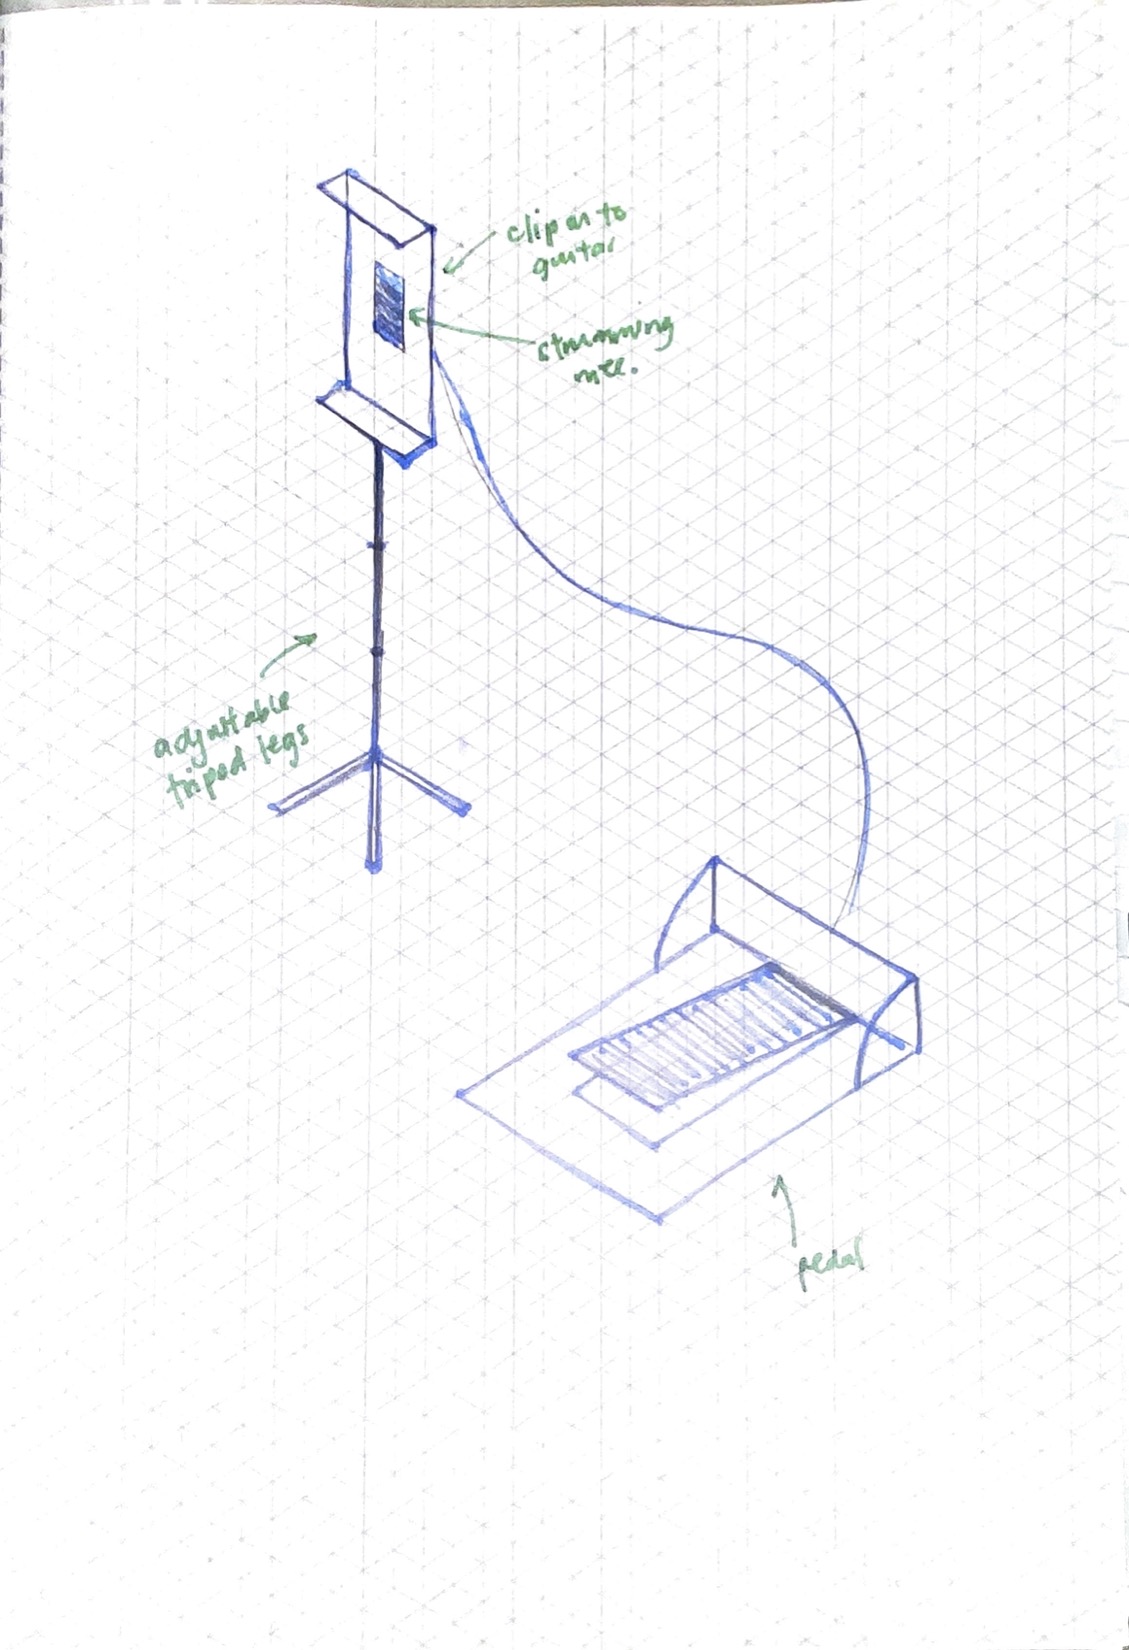 clip on to
guitar
strumming
mec.
adjustable
tripod legs
pedal